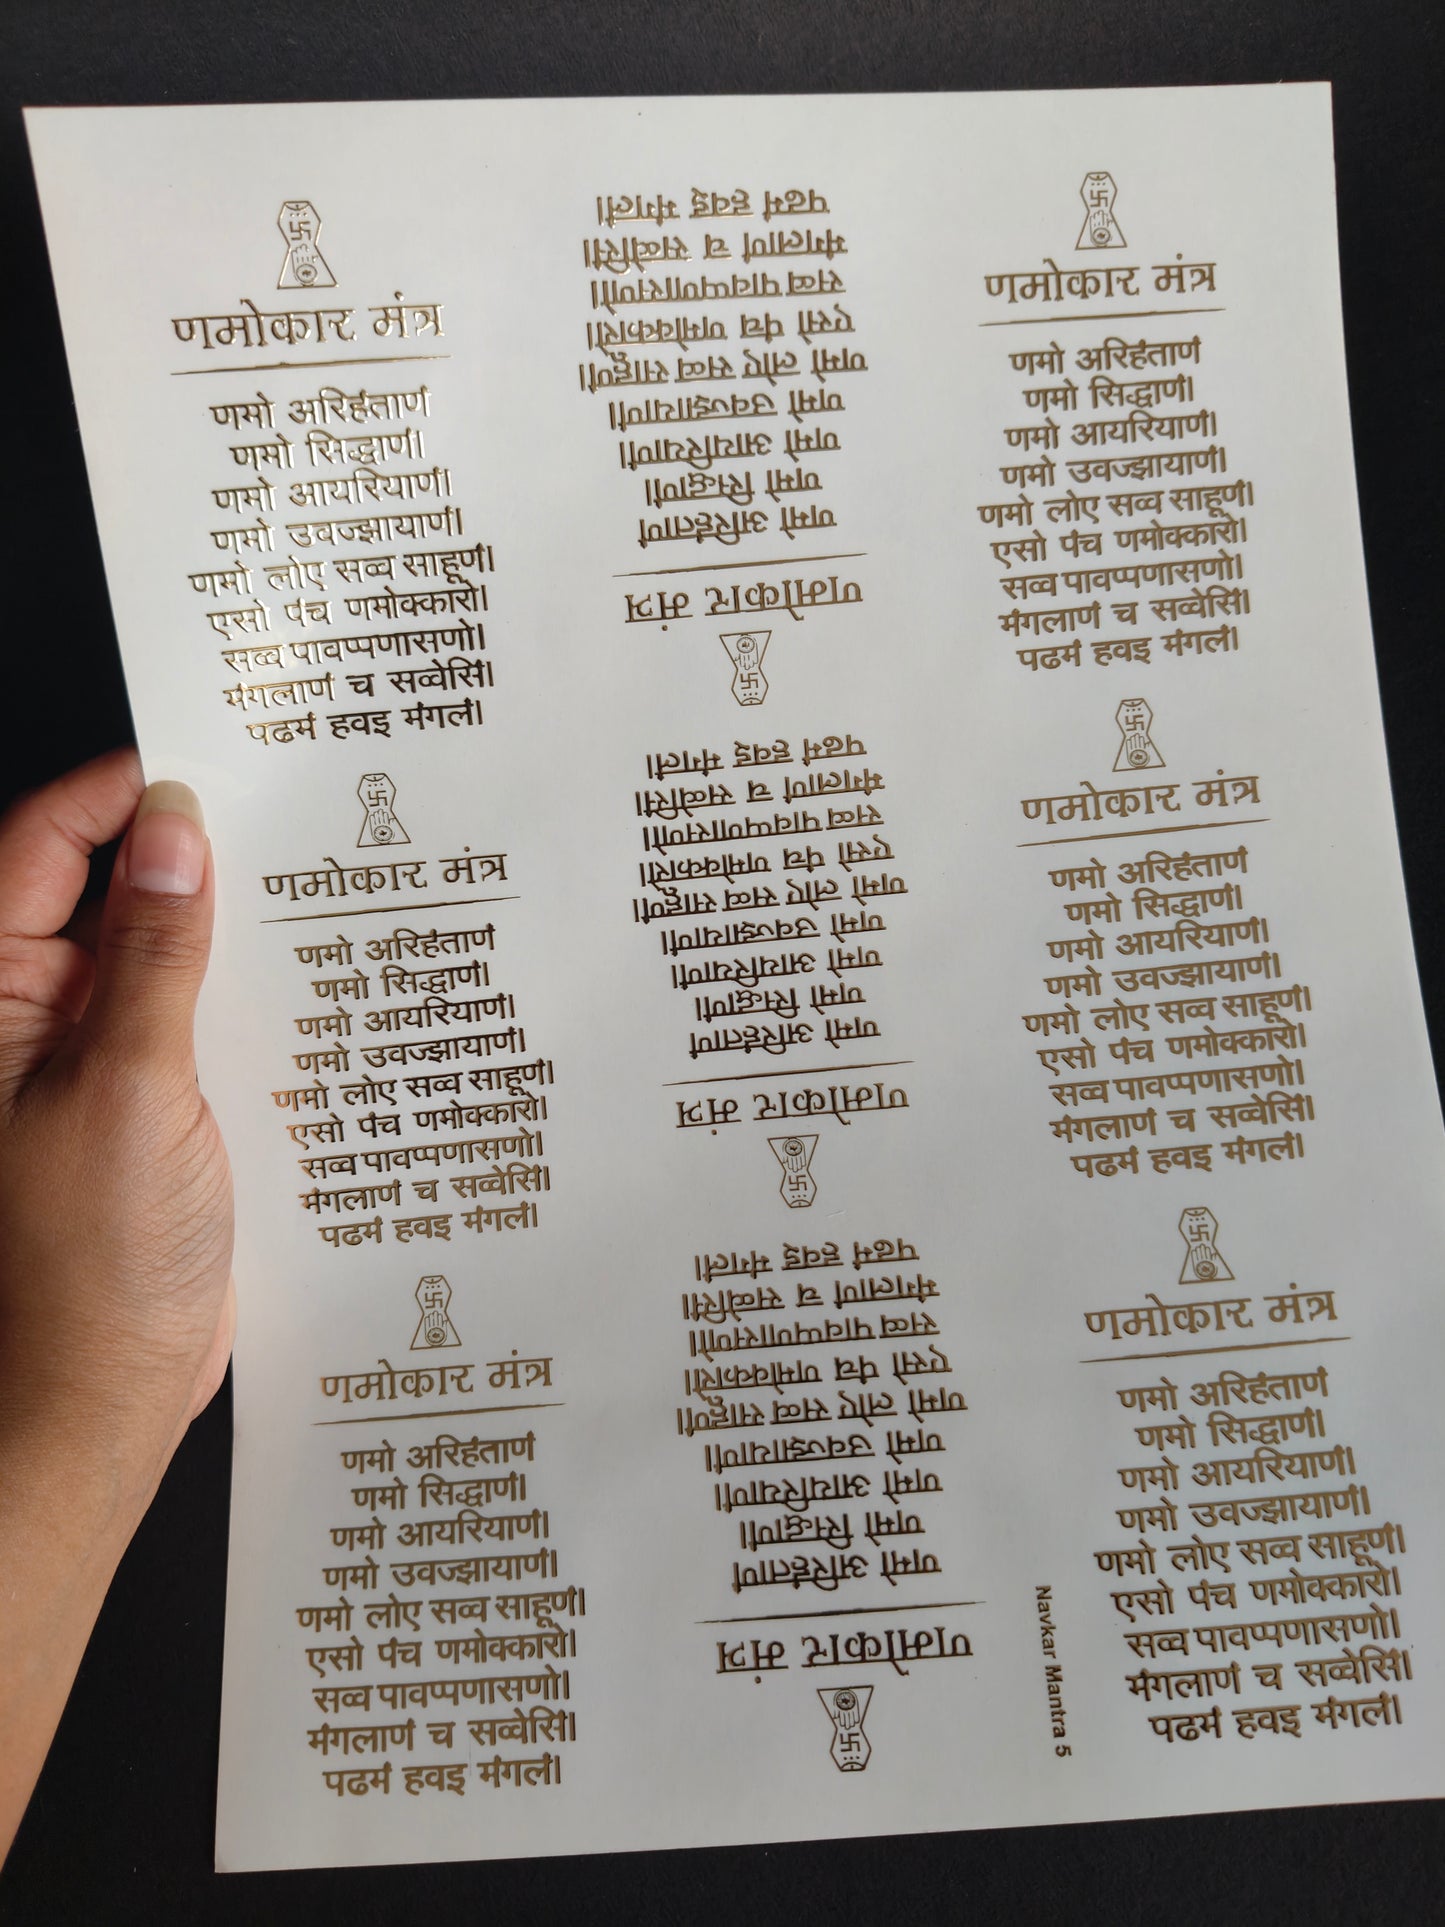 णमोकार मंत्र
णमो अरिहंताणं
णमो सिद्धाणं।
णमो आयरियाणं।
णमो उवज्झायाणं।
णमो लोए सव्व साहूणं।
एसो पंच णमोक्कारो।
सव्व पावप्पणासणो।
मंगलाणं च सव्वेसिं।
पढमं हवइ मंगलं।
णमोकार मंत्र
णमो अरिहंताणं
णमो सिद्धाणं।
णमो आयरियाणं।
णमो उवज्झायाणं।
णमो लोए सव्व साहूणं।
एसो पंच णमोक्कारो।
सव्व पावप्पणासणो।
मंगलाणं च सव्वेसिं।
पढमं हवइ मंगलं।
णमोकार मंत्र
णमो अरिहंताणं
णमो सिद्धाणं।
णमो आयरियाणं।
णमो उवज्झायाणं।
णमो लोए सव्व साहूणं।
एसो पंच णमोक्कारो।
सव्व पावप्पणासणो।
मंगलाणं च सव्वेसिं।
पढमं हवइ मंगलं।
णमोकार मंत्र
णमो अरिहंताणं
णमो सिद्धाणं।
णमो आयरियाणं।
णमो उवज्झायाणं।
णमो लोए सव्व साहूणं।
एसो पंच णमोक्कारो।
सव्व पावप्पणासणो।
मंगलाणं च सव्वेसिं।
पढमं हवइ मंगलं।
णमोकार मंत्र
णमो अरिहंताणं
णमो सिद्धाणं।
णमो आयरियाणं।
णमो उवज्झायाणं।
णमो लोए सव्व साहूणं।
एसो पंच णमोक्कारो।
सव्व पावप्पणासणो।
मंगलाणं च सव्वेसिं।
पढमं हवइ मंगलं।
णमोकार मंत्र
णमो अरिहंताणं
णमो सिद्धाणं।
णमो आयरियाणं।
णमो उवज्झायाणं।
णमो लोए सव्व साहूणं।
एसो पंच णमोक्कारो।
सव्व पावप्पणासणो।
मंगलाणं च सव्वेसिं।
पढमं हवइ मंगलं।
णमोकार मंत्र
णमो अरिहंताणं
णमो सिद्धाणं।
णमो आयरियाणं।
णमो उवज्झायाणं।
णमो लोए सव्व साहूणं।
एसो पंच णमोक्कारो।
सव्व पावप्पणासणो।
मंगलाणं च सव्वेसिं।
पढमं हवइ मंगलं।
णमोकार मंत्र
णमो अरिहंताणं
णमो सिद्धाणं।
णमो आयरियाणं।
णमो उवज्झायाणं।
णमो लोए सव्व साहूणं।
एसो पंच णमोक्कारो।
सव्व पावप्पणासणो।
मंगलाणं च सव्वेसिं।
पढमं हवइ मंगलं।
Navkar Mantra 5
णमोकार मंत्र
णमो अरिहंताणं
णमो सिद्धाणं।
णमो आयरियाणं।
णमो उवज्झायाणं।
णमो लोए सव्व साहूणं।
एसो पंच णमोक्कारो।
सव्व पावप्पणासणो।
मंगलाणं च सव्वेसिं।
पढमं हवइ मंगलं।